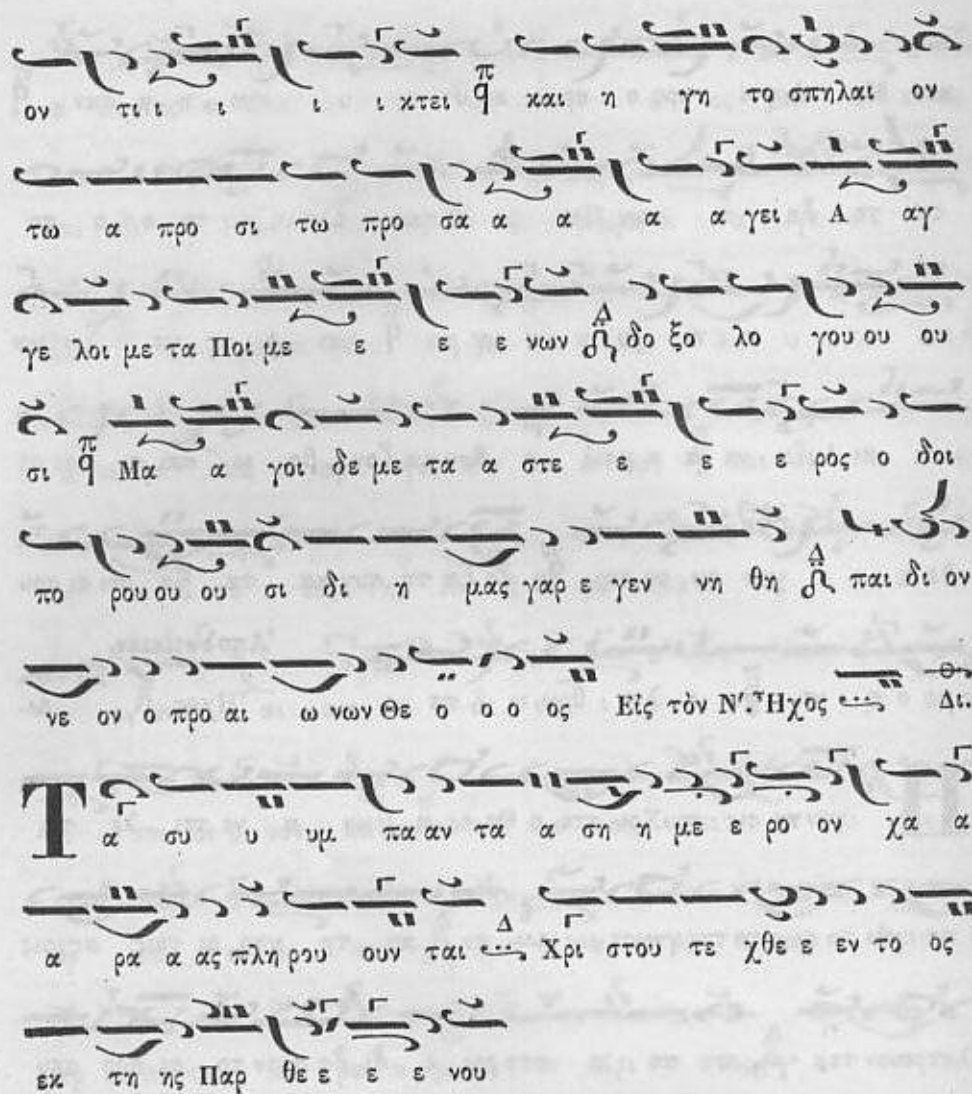 ον τι ι ι ι ι κτει π q και η γη το σπηλαι ον
τω α προ σι τω προ σα α α α α γει Α αγ
γε λοι με τα Ποι με ε ε ε νων Δ δο ξο λο γου ου ου
σι π q Μα α γοι δε με τα α στε ε ε ε ρος ο δοι
πο ρου ου ου σι δι η μας γαρ ε γεν νη θη Δ παι δι ον
νε ον ο προ αι ω νων Θε ο ο ο ος Εἰς τὸν Ν´. Ἦχος Δι.
Τα συ υ υμ πα αν τα α ση η με ε ρο ον χα α
α ρα α ας πλη ρου ουν ται Δ Χρι στου τε χθε ε εν το ος
εκ τη ης Παρ θε ε ε ε νου